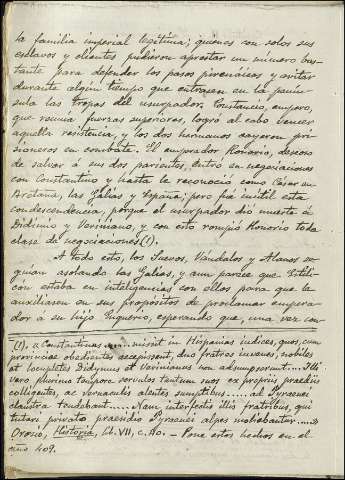 la familia imperial legítima; quienes con solos sus
esclavos y clientes pudieron aprestar un número bas-
tante para defender los pasos pirenáicos y evitar
durante algún tiempo que entrasen en la penín-
sula las tropas del usurpador. Constancio, empero,
que reunía fuerzas superiores, logró al cabo vencer
aquella resistencia, y los dos hermanos cayeron pri-
sioneros en combate. El emperador Honorio, deseoso
de salvar á sus dos parientes, entró en negociaciones
con Constantino y hasta le reconoció como César en
Bretaña, las Galias y España; pero fué inútil esta
condescendencia, porque el usurpador dió muerte á
Dídimo y Veriniano, y con esto rompió Honorio toda
clase de negociaciones (1).
A todo esto, los Suevos, Vándalos y Alanos se-
guían asolando las Galias, y aun parece que Estili-
con estaba en inteligencias con ellos para que le
auxiliasen en sus propósitos de proclamar empera-
dor á su hijo Euquerio, esperando que, una vez con-
(1). « Constantinus misit in Hispanias iudices, quos, cum
provinciae obedientes accepissent, duo fratres iuvenes, nobiles
et locupletes Didymus et Verinianus non adsumpserunt.... Illi
vero plurimo tempore servulos tantum suos ex propriis praediis
colligentes, ac vernaculis alentes sumptibus..... ad Pyraenei
claustra tendebant..... Nam interfectis illis fratribus, qui
tutari privato praesidio Pyraenei alpes moliebantur....»
Orosio, Historia, lib. VII, c. 40. – Pone estos hechos en el
año 409.